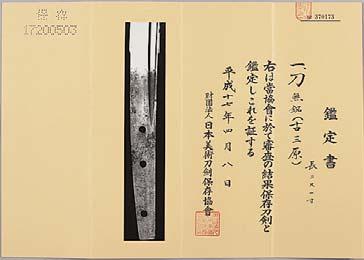 鑑定書
一、刀 無銘(古三原)
長 二尺一寸
右は當協會に於て審査の結果保存刀剣と
鑑定しこれを証する
平成十七年四月八日
財團法人 日本美術刀剣保存協會
№ 370173
保存
17200503